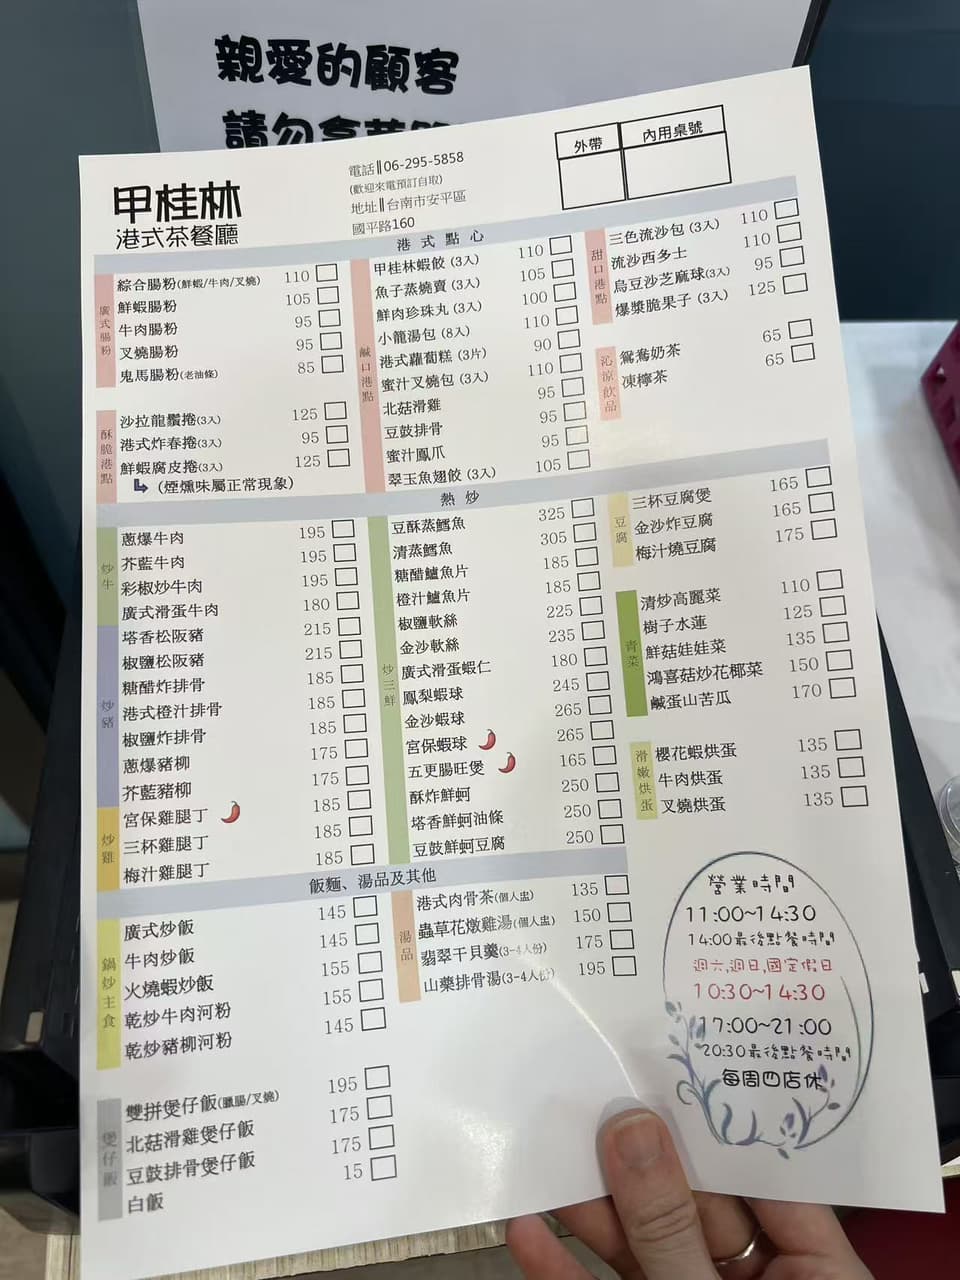 親愛的顧客
請勿拿菜單
甲桂林
港式茶餐廳
電話‖06-295-5858
(歡迎來電預訂自取)
地址‖台南市安平區
國平路160
外帶
內用桌號
港式點心
廣式腸粉
綜合腸粉(鮮蝦/牛肉/叉燒) 110
鮮蝦腸粉 105
牛肉腸粉 95
叉燒腸粉 95
鬼馬腸粉(老油條) 85
酥脆港點
沙拉龍鬚捲(3入) 125
港式炸春捲(3入) 95
鮮蝦腐皮捲(3入) 125
(煙燻味屬正常現象)
鹹口港點
甲桂林蝦餃(3入) 110
魚子蒸燒賣(3入) 105
鮮肉珍珠丸(3入) 100
小籠湯包(8入) 110
港式蘿蔔糕(3片) 90
蜜汁叉燒包(3入) 110
北菇滑雞 95
豆鼓排骨 95
蜜汁鳳爪 95
翠玉魚翅餃(3入) 105
甜口港點
三色流沙包(3入) 110
流沙西多士 110
烏豆沙芝麻球(3入) 95
爆漿脆果子(3入) 125
沁涼飲品
鴛鴦奶茶 65
凍檸茶 65
熱炒
炒牛
蔥爆牛肉 195
芥藍牛肉 195
彩椒炒牛肉 195
廣式滑蛋牛肉 180
炒豬
塔香松阪豬 215
椒鹽松阪豬 215
糖醋炸排骨 185
港式橙汁排骨 185
椒鹽炸排骨 185
蔥爆豬柳 175
芥藍豬柳 175
炒雞
宮保雞腿丁 185
三杯雞腿丁 185
梅汁雞腿丁 185
炒三鮮
豆酥蒸鱈魚 325
清蒸鱈魚 305
糖醋鱸魚片 185
橙汁鱸魚片 185
椒鹽軟絲 225
金沙軟絲 235
廣式滑蛋蝦仁 180
鳳梨蝦球 245
金沙蝦球 265
宮保蝦球 265
五更腸旺煲 165
酥炸鮮蚵 250
塔香鮮蚵油條 250
豆鼓鮮蚵豆腐 250
豆腐
三杯豆腐煲 165
金沙炸豆腐 165
梅汁燒豆腐 175
青菜
清炒高麗菜 110
樹子水蓮 125
鮮菇娃娃菜 135
鴻喜菇炒花椰菜 150
鹹蛋山苦瓜 170
滑嫩烘蛋
櫻花蝦烘蛋 135
牛肉烘蛋 135
叉燒烘蛋 135
飯麵、湯品及其他
鍋炒主食
廣式炒飯 145
牛肉炒飯 145
火燒蝦炒飯 155
乾炒牛肉河粉 155
乾炒豬柳河粉 145
煲仔飯
雙拼煲仔飯(臘腸/叉燒) 195
北菇滑雞煲仔飯 175
豆鼓排骨煲仔飯 175
白飯 15
湯品
港式肉骨茶(個人盅) 135
蟲草花燉雞湯(個人盅) 150
翡翠干貝羹(3-4人份) 175
山藥排骨湯(3-4人份) 195
營業時間
11:00~14:30
14:00最後點餐時間
週六,週日,國定假日
10:30~14:30
17:00~21:00
20:30最後點餐時間
每周四店休